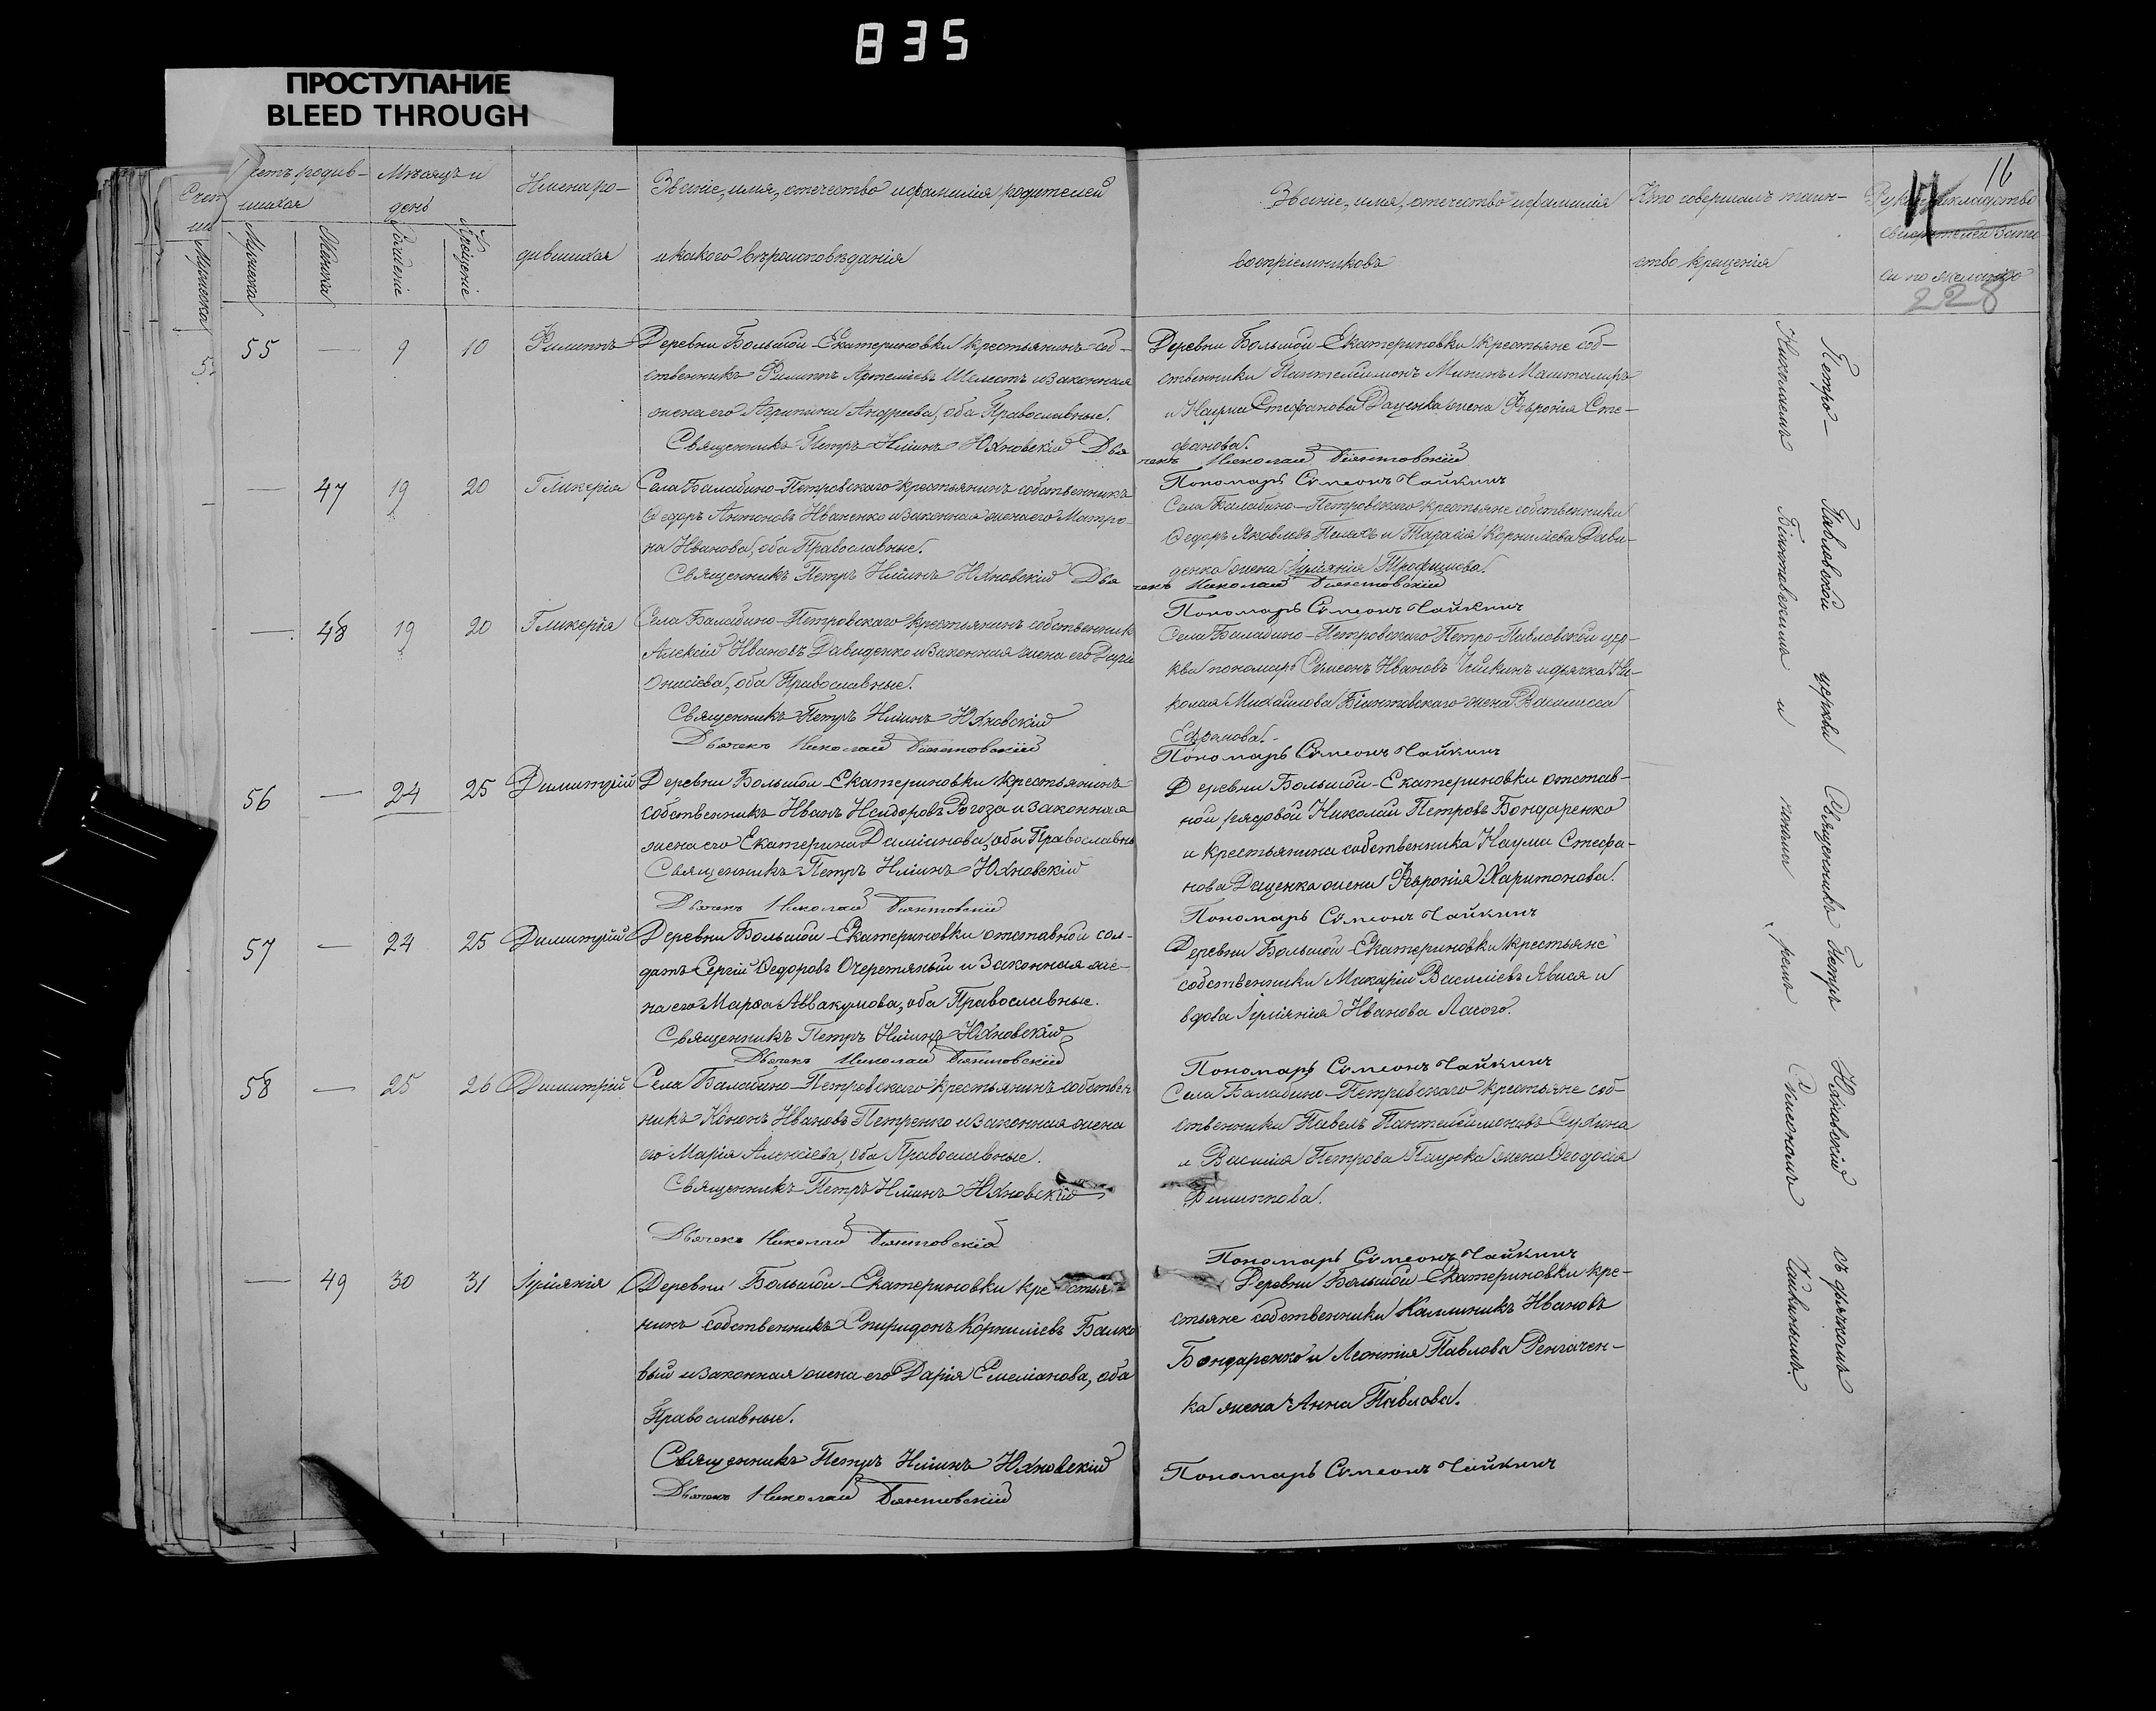 835
ПРОСТУПАНИЕ
BLEED THROUGH
16
228
Счетъ родив-
шихся
Мѣсяцъ и
день
Имена ро-
дившихся
Званіе, имя, отчество и фамилія родителей
и какого вѣроисповѣданія
Званіе, имя, отчество и фамилія
воспріемниковъ
Кто совершалъ таин-
ство крещенія
Рукоприкладство
свидѣтелей запи-
си по желанію
Мужеска
Женска
Рожденіе
Крещеніе
55 — 9 10 Филиппъ
Деревни Большой-Екатериновки крестьянинъ соб-
ственникъ Филиппъ Артеміевъ Шелестъ и законная
жена его Агрипина Андреева, оба Православные.
Священникъ Петръ Юхновскій Дья
Деревни Большой-Екатериновки крестьяне соб-
ственники Пантелеимонъ Мининъ
и Наума Стефанова Даценка жена Февронія Сте-
фанова.
чекъ Николай Біянтовскій
Пономарь Симеонъ Чайкинъ
— 47 19 20 Гликерія
Села Балабино-Петровскаго крестьянинъ собственникъ
Ѳедоръ Антоновъ Иваненко и законная жена его Матро-
на Иванова, оба Православные.
Священникъ Петръ Юхновскій Дья
Села Балабино-Петровскаго крестьяне собственники
Ѳедоръ Яковлевъ и Тарасія Корнилієва Дави-
денка жена Іуліянія Трофимова.
чекъ Николай Біянтовскій
Пономарь Симеонъ Чайкинъ
— 48 19 20 Гликерія
Села Балабино-Петровскаго крестьянинъ собственникъ
Алексій Ивановъ Давиденко и законная жена его Дарія
Онисіева, оба Православные.
Священникъ Петръ Юхновскій
Дьячекъ Николай Біянтовскій
Села Балабино-Петровскаго Петро-Павловской цер-
кви пономарь Симеонъ Ивановъ Чайкинъ и дьячка Ни-
колая Михайлова Біянтовскаго жена Василисса
Ефремова.
Пономарь Симеонъ Чайкинъ
56 — 24 25 Димитрій
Деревни Большой-Екатериновки крестьянинъ
собственникъ Иванъ Исидоровъ Рогоза и законная
жена его Екатерина Даміанова, оба Православные
Священникъ Петръ Юхновскій
Дьячекъ Николай Біянтовскій
Деревни Большой-Екатериновки отстав-
ной рядовой Николай Петровъ Бондаренко
и крестьянина собственника Наума Стефа-
нова Даценка жена Февронія Харитонова.
Пономарь Симеонъ Чайкинъ
57 — 24 25 Димитрій
Деревни Большой-Екатериновки отставной сол-
датъ Сергій Ѳедоровъ Очеретяный и законная же-
на его Марѳа Аввакумова, оба Православные.
Священникъ Петръ Юхновскій
Дьячекъ Николай Біянтовскій
Деревни Большой-Екатериновки крестьяне
собственники Макарій Василіевъ и
вдова Іуліянія Иванова
Пономарь Симеонъ Чайкинъ
58 — 25 26 Димитрій
Села Балабино-Петровскаго крестьянинъ собствен
никъ Кононъ Ивановъ Петренко и законная жена
его Марія Алексіева, оба Православные.
Священникъ Петръ Юхновскій
Дьячекъ Николай Біянтовскій
Села Балабино-Петровскаго крестьяне соб-
ственники Павелъ Пантелеимоновъ Сухина
и Василія Петрова жена Ѳеодосія
Филиппова.
Пономарь Симеонъ Чайкинъ
— 49 30 31 Іуліянія
Деревни Большой-Екатериновки крестья-
нинъ собственникъ Спиридонъ Корниліевъ Балко
вый и законная жена его Дарія Емеліанова, оба
Православные.
Священникъ Петръ Юхновскій
Дьячекъ Николай Біянтовскій
Деревни Большой-Екатериновки кре-
стьяне собственники Каллиникъ Ивановъ
Бондаренко и Леонтія Павлова
ка жена Анна Павлова.
Пономарь Симеонъ Чайкинъ
Петро- Павловской церкви Священникъ Петръ Юхновскій съ дьячкомъ
Николаемъ Біянтовскимъ и пономаремъ Симеономъ Чайкинымъ.